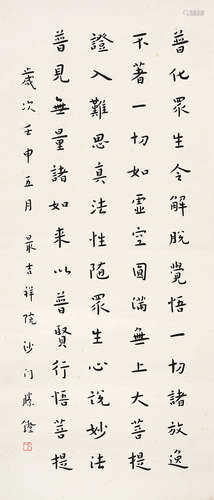 普化眾生令解脫覺悟一切諸放逸
不著一切如虛空圓滿無上大菩提
證入難思真法性隨眾生心說妙法
普見無量諸如来以普賢行悟菩提
歲次壬申五月 最吉祥院沙门勝鐙